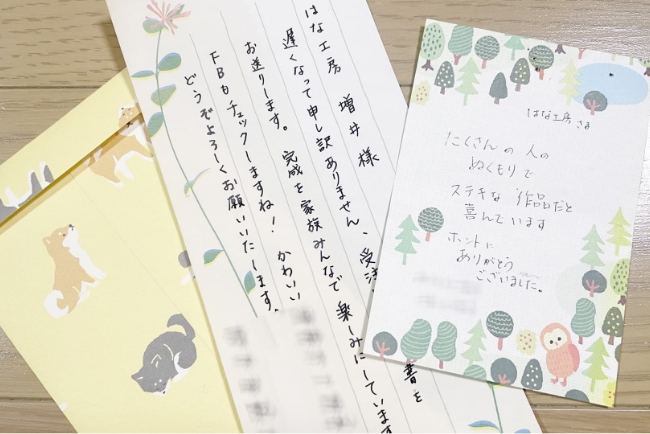 はな工房 増井様
遅くなって申し訳ありません、受注 書を
お送りします。完成を家族みんなで楽しみにしています
FBもチェックしますね！かわいい
どうぞよろしくお願いいたします。
はな工房さま
たくさんの人の
ぬくもりで
ステキな作品だと
喜んでいます
ホントに
ありがとう
ございました。